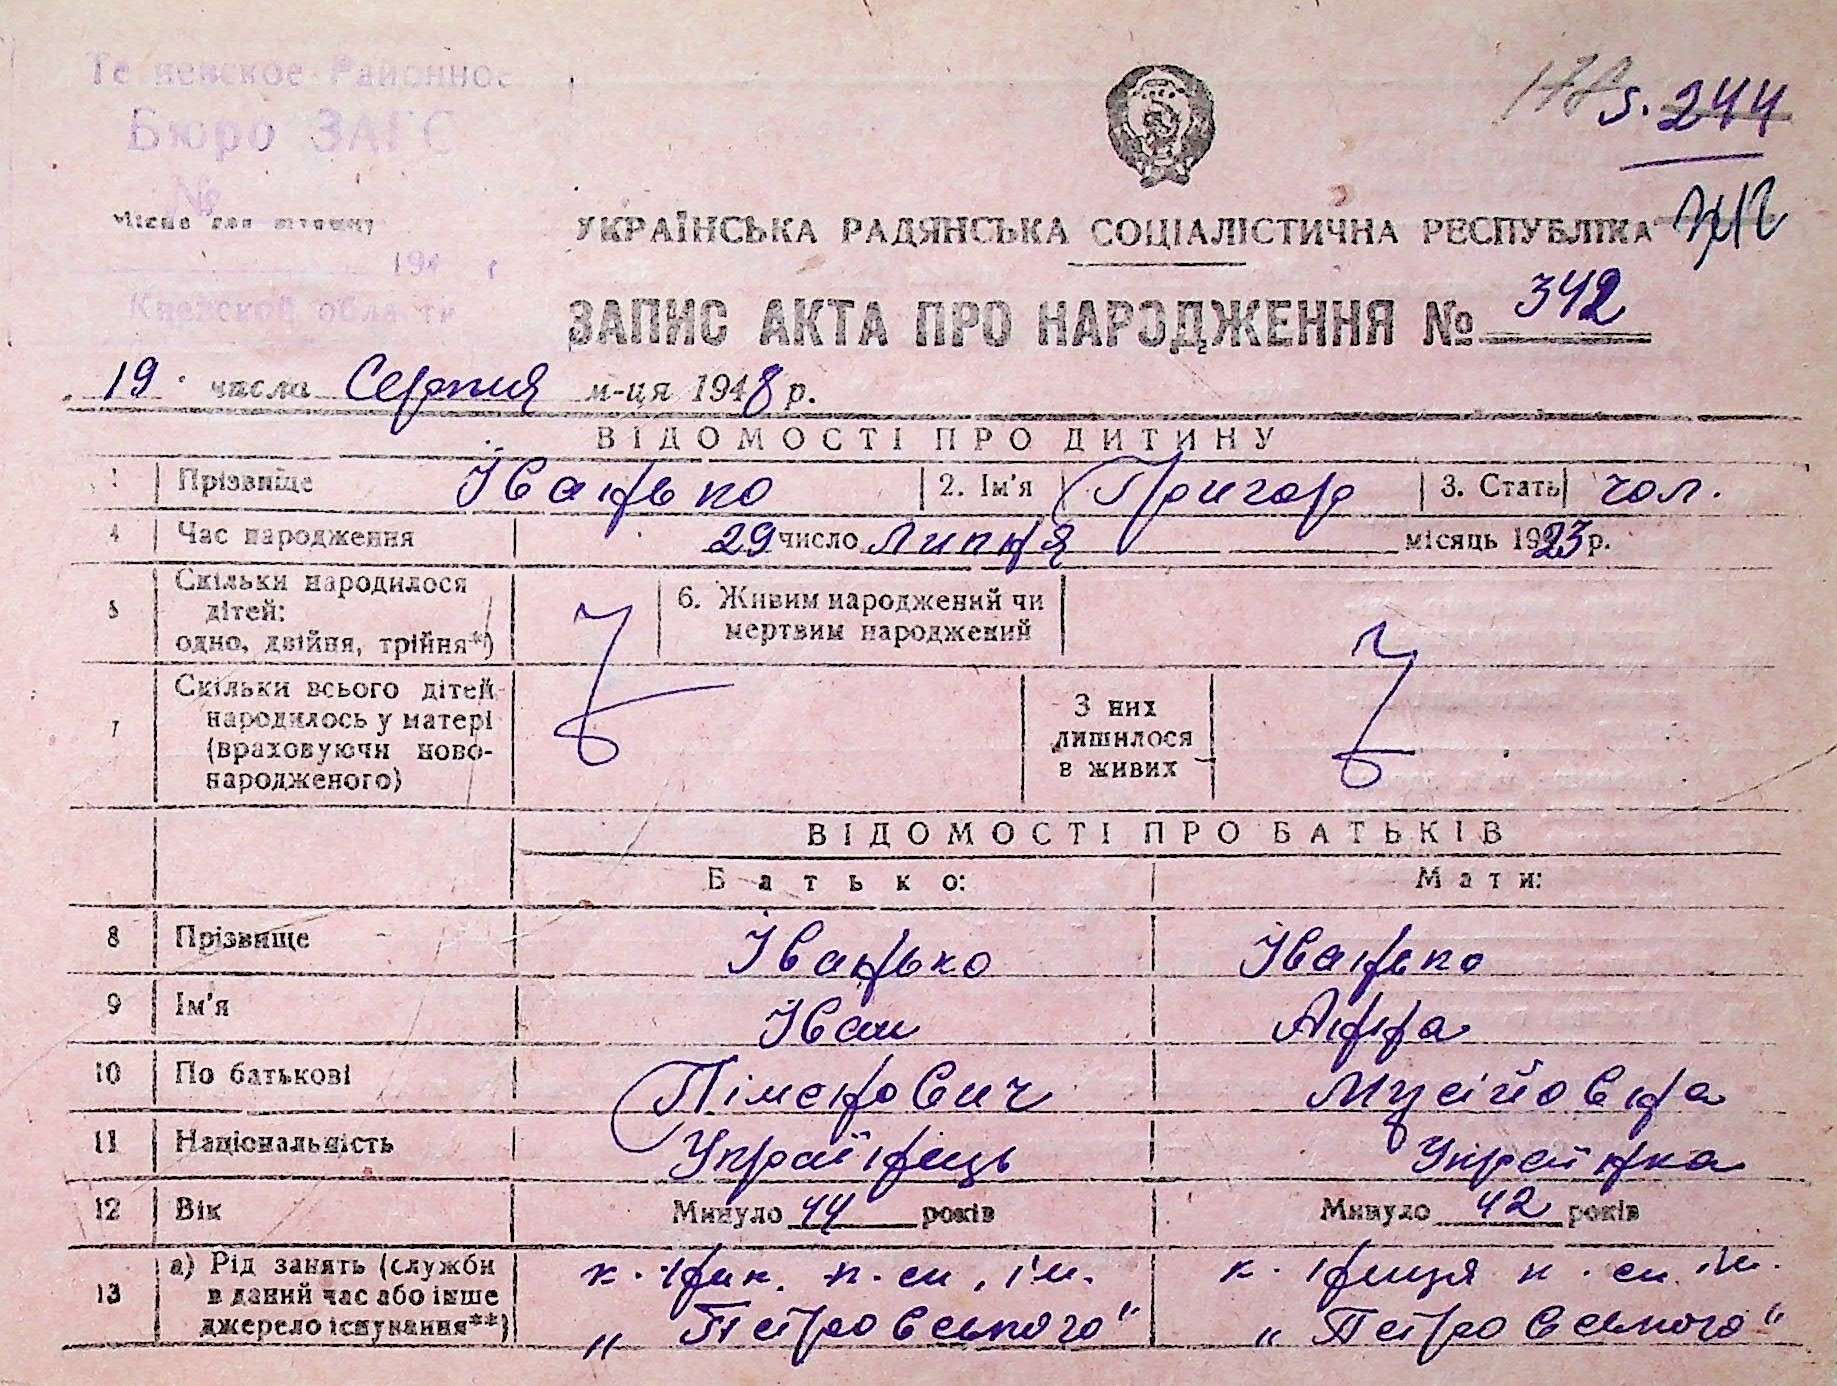 Районное
Бюро ЗАГС
№
Місце для штампу
194 г
Киевской области
s. 244
УКРАЇНСЬКА РАДЯНСЬКА СОЦІАЛІСТИЧНА РЕСПУБЛІКА
ЗАПИС АКТА ПРО НАРОДЖЕННЯ № 342
19 числа Серпня м-ця 1948 р.
ВІДОМОСТІ ПРО ДИТИНУ
1 Прізвище Іванько 2. Ім'я Григор 3. Стать чол.
4 Час народження 29 число Липня місяць 1923 р.
5 Скільки народилося дітей: одно, двійня, трійня*) 6. Живим народжений чи мертвим народжений
7 Скільки всього дітей народилось у матері (враховуючи новонародженого) З них лишилося в живих
ВІДОМОСТІ ПРО БАТЬКІВ
Батько: Мати:
8 Прізвище Іванько Іванько
9 Ім'я Іван Анна
10 По батькові Піменович Мусійовна
11 Національність Українець Українка
12 Вік Минуло 44 років Минуло 42 років
13 а) Рід занять (служби в даний час або інше джерело існування**) к. ім. к. ім.
„Петровського" „Петровського"